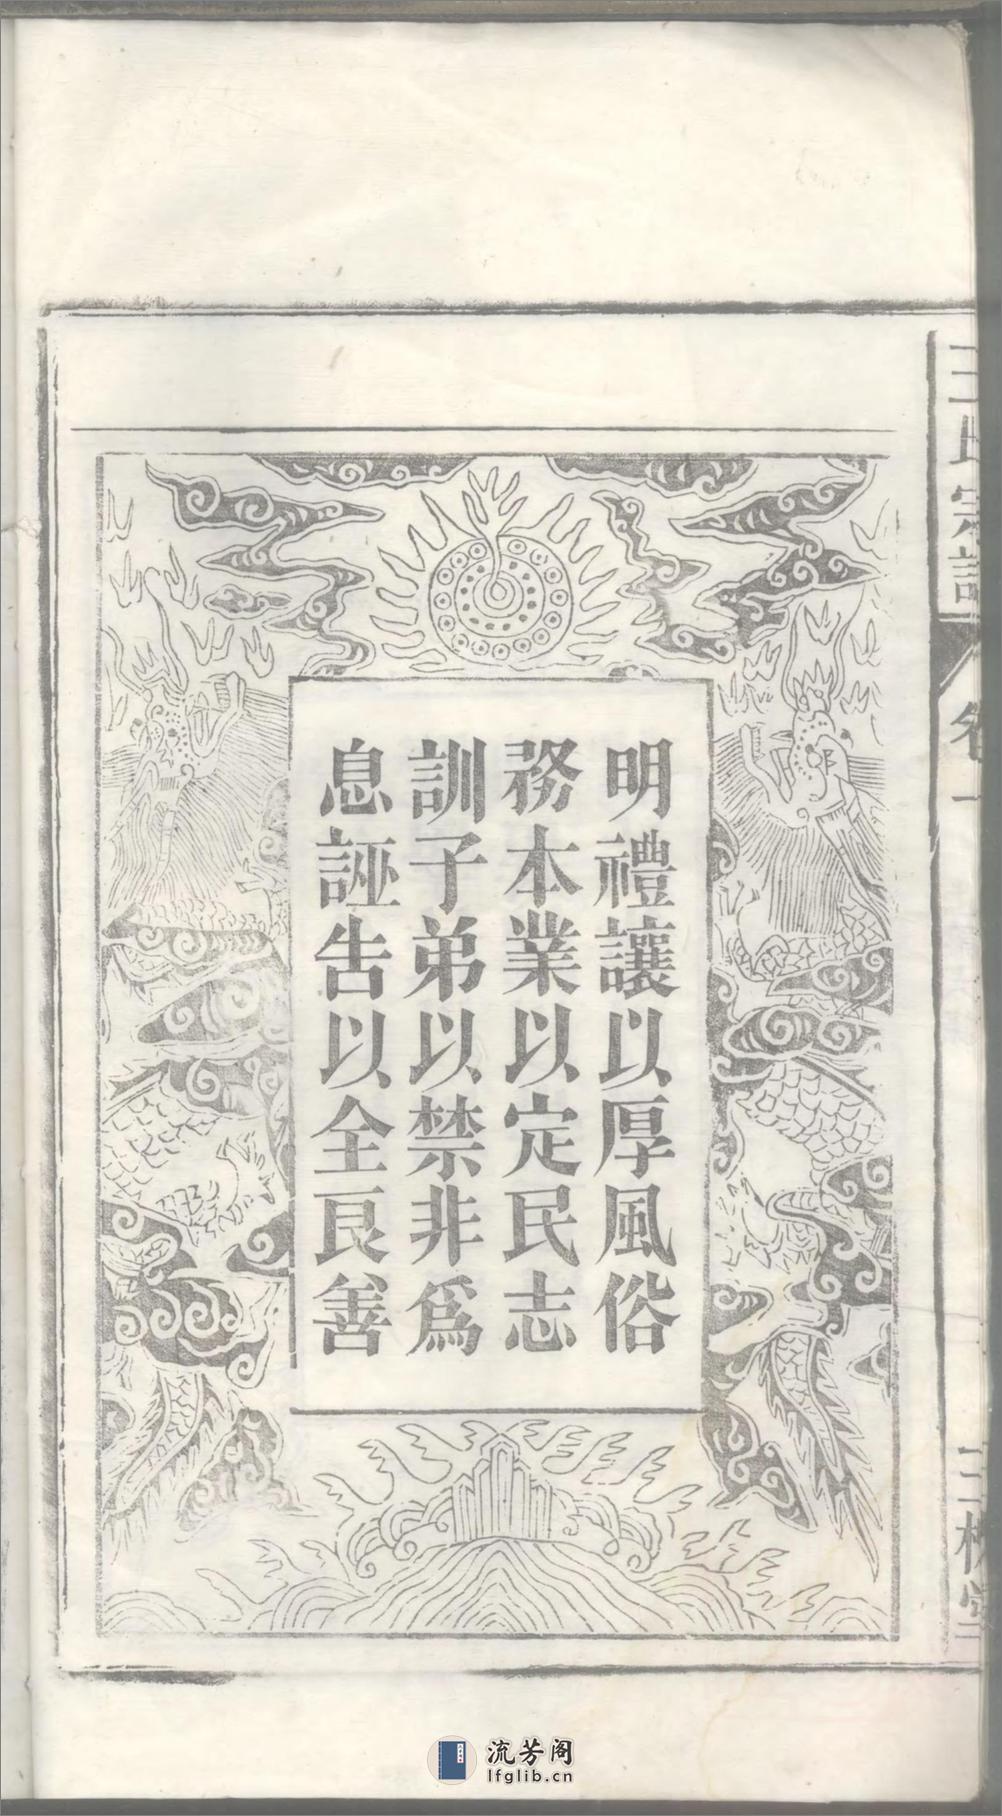 明禮讓以厚風俗
務本業以定民志
訓子弟以禁非爲
息誣告以全良善
王氏宗譜
卷一
三槐堂
流芳阁
lfglib.cn